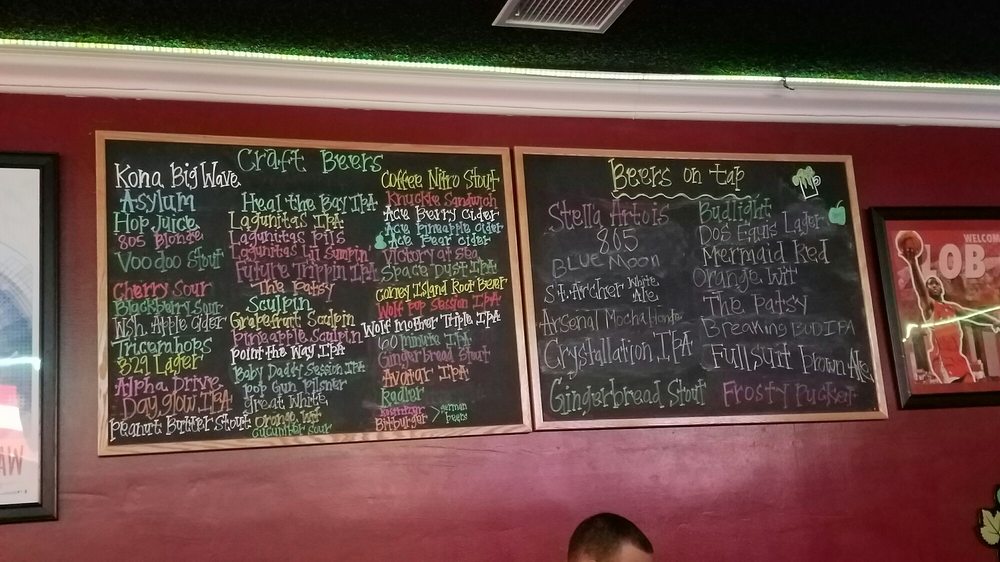 Craft Beers
Kona Big Wave
Asylum
Hop Juice
805 Blonde
Voodoo Stout
Cherry Sour
Blackberry Sour
Wsh. Apple cider
Tricerahops
329 Lager
Alpha Drive
Day glow IPA
Peanut Butter Stout
Heal the Bay IPA
Lagunitas IPA
Lagunitas Pils
Lagunitas Lil Sumpin
Future Trippin IPA
The Patsy
Sculpin
Grapefruit Sculpin
Pineapple Sculpin
Point the Way IPA
Baby Daddy Session IPA
Pop Gun Pilsner
Great White
Orange Wit
Cucumber Sour
Coffee Nitro Stout
Knuckle Sandwich
Ace Berry Cider
Ace Pineapple cider
Ace Pear cider
Victory at Sea
Space Dust IPA
Coney Island Root Beer
Wolf Pop Session IPA
Wolf Mother Triple IPA
60 minute IPA
Gingerbread Stout
Avatar IPA
Radler
Kostritzer
Bitburger
> german beers
Beers on tap
Stella Artois
805
BLUE MOON
St. Archer White Ale
Arsenal Mocha
Crystallation IPA
Gingerbread Stout
Budlight
Dos Equis Lager
Mermaid Red
Orange Wit
The Patsy
Breaking BUD IPA
Fullsuit Brown Ale
Frosty Pucker
WELCOM
LOB
WAJ